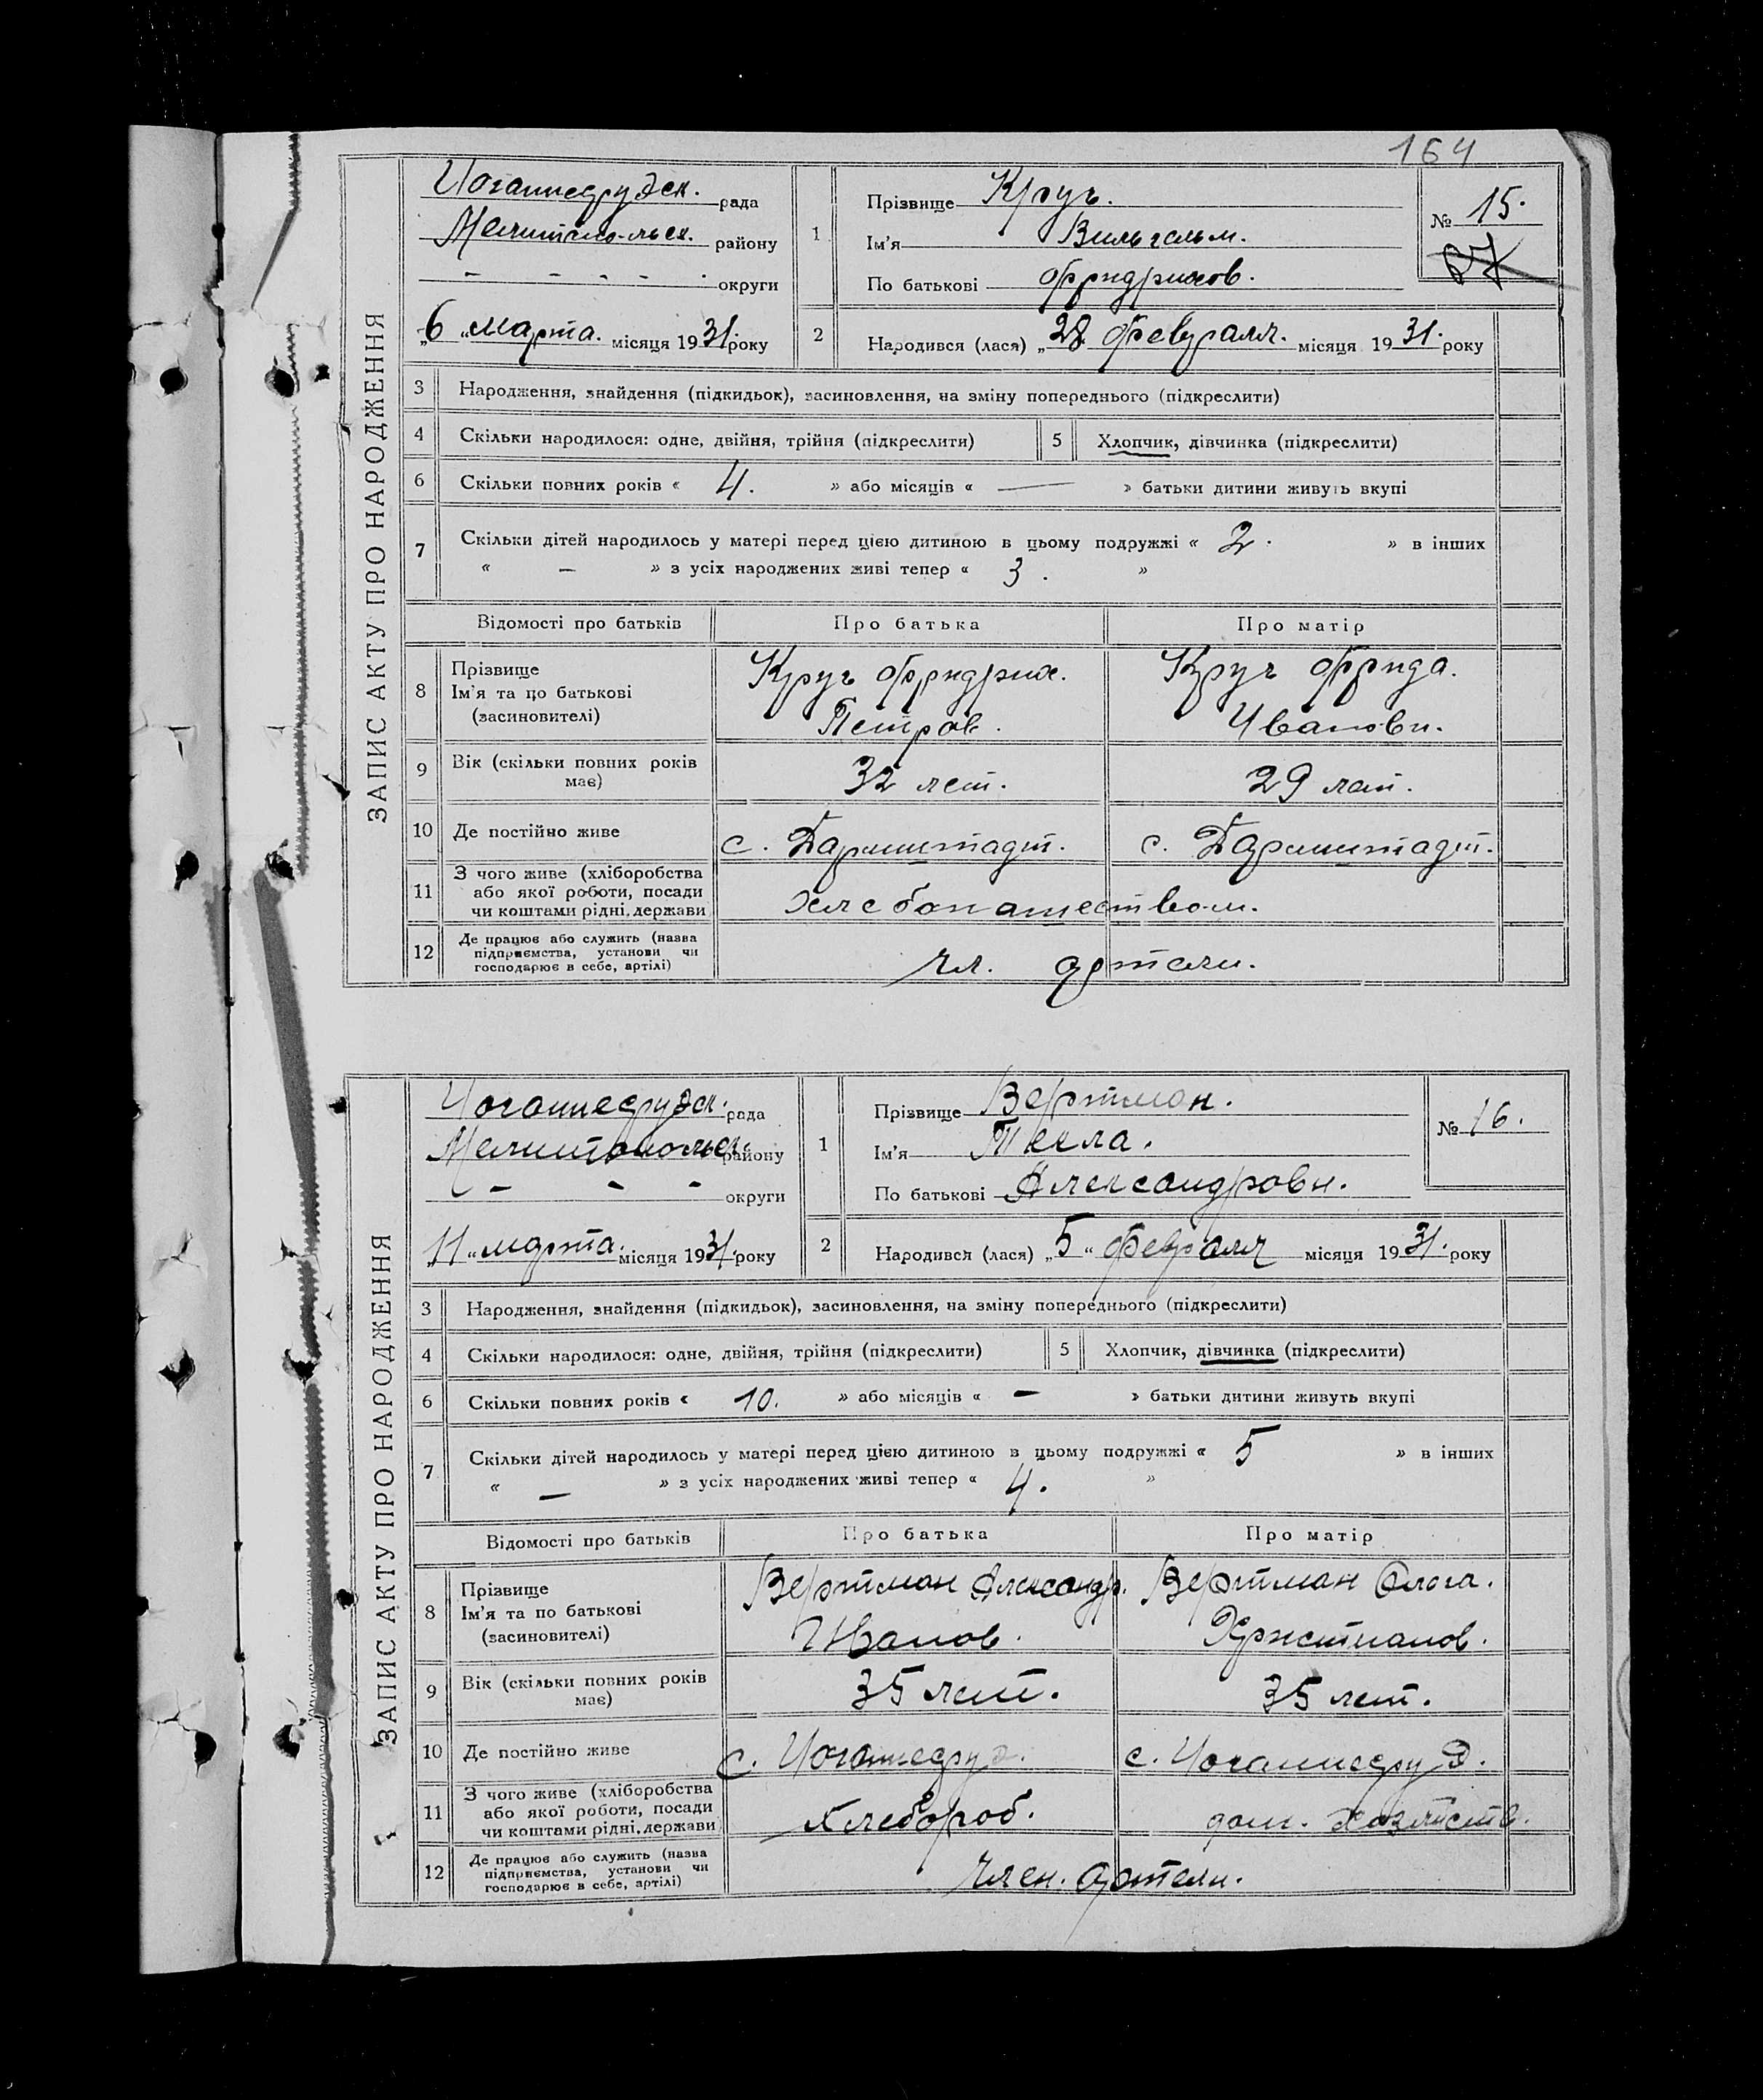 164
ЗАПИС АКТУ ПРО НАРОДЖЕННЯ
Иоганнесрудск. рада
Мелитопольск. району
- - - - округи
„6 „ марта. місяця 1931. року
1 Прізвище Круг.
Ім'я Вильгельм.
По батькові Фридрихов.
№ 15.
2 Народився (лася) „28. февраля. місяця 1931. року
3 Народження, знайдення (підкидьок), засиновлення, на зміну попереднього (підкреслити)
4 Скільки народилося: одне, двійня, трійня (підкреслити) 5 Хлопчик, дівчинка (підкреслити)
6 Скільки повних років « 4. » або місяців « — » батьки дитини живуть вкупі
7 Скільки дітей народилось у матері перед цією дитиною в цьому подружжі « 2. » в інших
« – » з усіх народжених живі тепер « 3. »
Відомості про батьків Про батька Про матір
8 Прізвище Ім'я та по батькові (засновителі) Круг Фридрих. Круг Фрида.
Петров. Ивановн.
9 Вік (скільки повних років має) 32 лет. 29 лет.
10 Де постійно живе с. Дармштадт. с. Дармштадт.
11 З чого живе (хліборобства
або якої роботи, посади
чи коштами рідні, держави хлебопашеством.
12 Де працює або служить (назва
підприємства, установи чи
господарює в себе, артілі) чл. артели.
ЗАПИС АКТУ ПРО НАРОДЖЕННЯ
Иоганнесрудск. рада
Мелитопольск. району
- - - округи
„11 „ марта. місяця 1931. року
1 Прізвище Вертман.
Ім'я Текла.
По батькові Александровн.
№ 16.
2 Народився (лася) „5 „ февраля місяця 1931. року
3 Народження, знайдення (підкидьок), засиновлення, на зміну попереднього (підкреслити)
4 Скільки народилося: одне, двійня, трійня (підкреслити) 5 Хлопчик, дівчинка (підкреслити)
6 Скільки повних років « 10. » або місяців « – » батьки дитини живуть вкупі
7 Скільки дітей народилось у матері перед цією дитиною в цьому подружжі « 5 » в інших
« – » з усіх народжених живі тепер « 4. »
Відомості про батьків Про батька Про матір
8 Прізвище Ім'я та по батькові (засиновителі) Вертман Александр. Вертман Ольга.
Иванов. Христианов.
9 Вік (скільки повних років має) 35 лет. 35 лет.
10 Де постійно живе с. Иоганнесруэ. с. Иоганнесруэ.
11 З чого живе (хліборобства
або якої роботи, посади
чи коштами рідні, держави Хлебороб. дом. хозяйств.
12 Де працює або служить (назва
підприємства, установи чи
господарює в себе, артілі) член. артели.